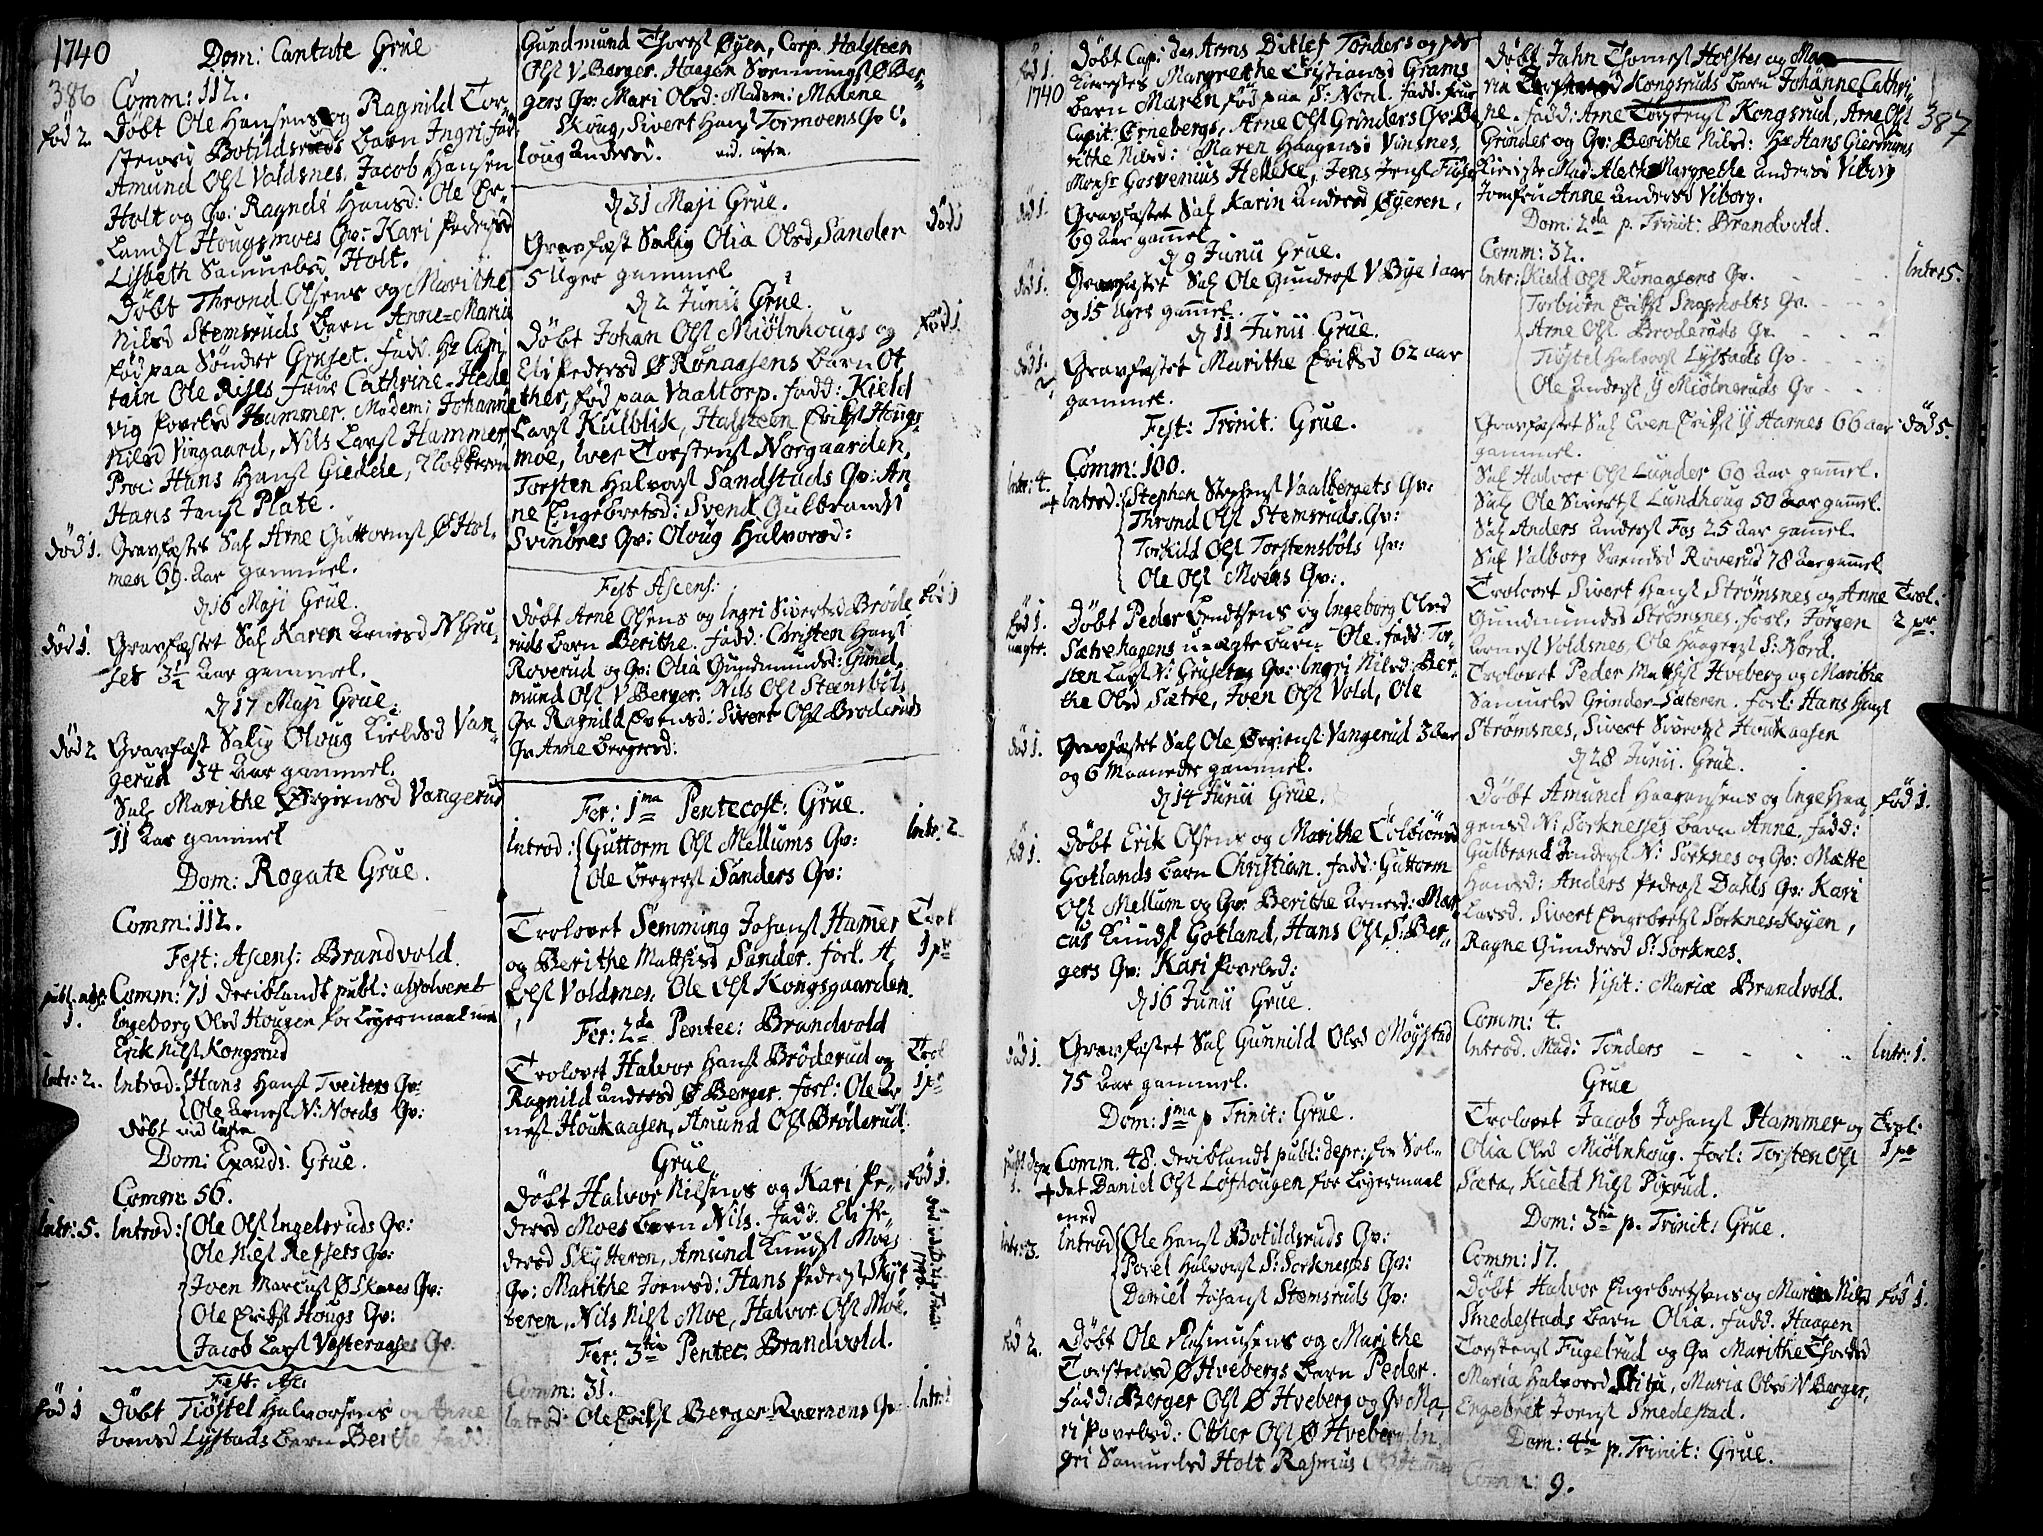 1740
386
Dom: Cantate Grue
Comm: 112.
Død 2
Døbt Ole Hansens og Ragnild Tor-
stensd Botildsruds barn Ingri. fad:
Amund Ols Voldsnes. Jacob Hansen
Holt og Qv: Ragndi Hansd: Ole Er-
landss Hougsmoes Qv: Kari Pedersd
Lisbeth Samuelsd Holt.
Døbt Thrond Olsens og Marithe
Nilsd Stemsruds barn Anne-Maria
fød paa Søndre Gruset. fadd. Hr Capi-
tain Ole Rises frue Cathrine-Hed-
vig Povelsd Hammer. Madem: Johanne
Nilsd Vingaard, Nils Larss Hammer
Proc: Hans Hanss Giedde, Klokkeren
Hans Janss Plate.
død 1.
Gravfæstet Sal Arne Guttormss Ø Hol-
men 69. Aar gammel.
d 16 Maji Grue.
død 1.
Gravfæstet Sal Karen Arnesd N Gru-
set 3½ Aar gammel.
d 17 Maji Grue.
død 2
Gravfæst Salig Oloug Kieldsd Van-
gerud 34 Aar gammel.
Sal Marithe Ørgiensd Vangerud
11 Aar gammel
Dom: Rogate Grue.
Comm: 112.
Fest: Ascens: Brandvold.
publ. abs:
1.
Comm: 71 deriblandt publ: absolveret
Ingeborg Olsd Hougen for Leyermaal med
Erik Nilss Kongsrud
Intr: 2.
Introd: Hans Hanss Tveiters Qv:
Ole Arness N: Nords Qv:
Døbt vid infra
Dom: Exaudi. Grue.
Comm: 56.
Intr: 5.
Introd: Ole Olss Ingelsruds Qv:
Ole Nilss Refsets Qv:
Joen Marcuss Ø Skares Qv:
Ole Erikss Hougs Qv:
Jacob Larss Vesteraases Qv.
Fest. Asc.
fød 1
Døbt Tiøstel Halvorsens og Anne
Joensd Lystads barn Berthe fadd:
Gundmund Thorss Øyen, Corp. Halsteen
Olss V Berger. Haagen Svenningss Ø Ber-
gers Qv: Mari Olsd: Madem: Malene
Skoug, Sivert Hanss Tormoens Qv O-
loug Andersd. vid. infra.
d 31 Maji Grue.
død 1
Gravfæst Salig Olia Olsd Sander
5 Uger gammel
d 2 Junii Grue.
fød 1.
Døbt Johan Olss Miølnhougs og
Eli Pedersd Ø Rønaasens barn Ot
ther, fød paa Vaaltorp. fadd: Kield
Larss Kulblik, Halsteen Erikss Hougs-
moe, Iver Torstenss Norgaarden,
Torsten Halvorss Sandstads Qv: An
ne Engebretsd: Svend Gulbrandss
Svinøres Qv: Oloug Halvorsd:
Fest Ascens:
fød 1
Døbt Arne Olsens og Ingri Sivertsd Brøde
ruds barn Berithe. fadd: Christen Hanss
Roverud og Qv: Olia Gundmundsd: Gund-
mund Olss V Berger. Nils Olss Steensbøls
Qv Ragnild Evensd: Sivert Olss Broderuds
Qv Arne Bergersd:
Fer: 1ma Pentecost: Grue.
Intr: 2.
Introd: Guttorm Olss Mellums Qv:
Ole Bergerss Sanders Qv:
Trol
1 pr
Trolovet Semming Johanss Hamer
og Berithe Matthisd Sander. forl. A
Olss Voldsnes, Ole Olss Kongsgaarden.
Fer: 2da Pentec: Brandvold
Trol
1 pr
Trolovet Halvor Hanss Brøderud og
Ragnild Andersd Ø Berger. forl: Ole Ar
ness Houkaasen, Amund Olss Brøderud:
Grue
fød 1.
Døbt Halvor Nilsens og Kari Pe-
dersd Moes barn Nils. fadd. Eli Pe-
dersd Skytteren, Amund Knudss Moes
Qv: Marithe Joensd: Hans Pederss Skyt
teren, Nils Nilss Moe, Halvor Olss Moe.
Fer: 3tia Pentec: Brandvold.
Comm: 31.
Intr: 1
Introd: Ole Erikss Berger-Kvernens Qv
fød 1.
1740
Døbt Cap: des Arms Ditlef Tønders og
Kierestes Margrethe Cristiansd Grams
barn Maren fød paa S: Nord. fadd: frue
Capit: Ernebergs, Arne Olss Grinders Qv: Be
rithe Nilsd: Maren Haagensd Vinsnes,
Monsr Gosvenius Helleke, Jens Jenss
død 1.
Gravfæstet Sal Karin Andersd Øyeren,
69 Aar gammel
d 9 Junii Grue.
død 1.
Gravfæstet Sal Ole Gunderss V Bye 1 aar
og 15 Uger gammel.
d 11 Junii Grue.
død 1.
Gravfæstet Marithe Eriksd 62 aar
gammel.
Fest: Trinit: Grue.
Comm: 100.
Intr: 4.
Introd: Stephen Stephenss Vaalbergets Qv:
Thrond Olss Stemsruds. Qv:
Torkild Olss Torstensbøls Qv:
Ole Olss Moens Qv:.
fød 1.
uægte.
Døbt Peder Bendtsens og Ingeborg Olsd
Sætrehagens uægte barn Ole. fadd: Tor-
sten Larss N: Gruset og Qv: Ingri Nilsd: Ber-
the Olsd Sætre, Joen Olss Vold, Ole
død 1.
Gravfæstet Sal Ole Ørgienss Vangerud 3 Aar
og 6 Maaneder gammel.
d 14 Junii Grue.
fød 1.
Døbt Erik Olsens og Marithe Colbiørnsd
Gotlands barn Christian. fadd: Guttorm
Olss Mellum og Qv: Berithe Arnesd: Mar
cus Knudss Gotland, Hans Olss S: Ber-
gers Qv: Kari Povelsd:
d 16 Junii Grue.
død 1.
Gravfæstet Sal Gunnild Olsd Møystad
75 Aar gammel.
Dom: 1ma p Trinit: Grue.
publ depr
1.
Comm. 48. deriblandt publ: depr: for Sol-
dat Daniel Olss Løfhougen for Leyermaal
med
Intr: 3.
Introd Ole Hanss Botildsruds Qv:
Povel Halvorss S: Sorknesses Qv:
Daniel Johanss Stemsruds Qv:
fød 2.
Døbt Ole Rasmusens og Marithe
Torstensd Ø Hvebergs barn Peder.
fadd: Berger Olss Ø Hveberg og Qv Ma-
ri Povelsd: Otther Olss Ø Hveberg. In
gri Samuelsd Holt Rasmus
387
Døbt Jahn Thomess Holstes og Ma-
ria Kongsruds barn Johanne Cathri-
ne. fadd: Arne Torstenss Kongsrud, Arne Olss
Grinder og Qv: Berithe Nilsd: Hr Hans Gierdrums
Kiereste Mad: Aleth Margrethe Andersd Viborg
Jomfru Anne Andersd Viborg.
Dom: 2da p. Trinit: Brandvold.
Comm: 32.
Intr: 5.
Intr: Kield Olss Rønaasens Qv.
Torbiørn Erikss Snapholts Qv.
Arne Olss Broderuds Qv.
Tiøstel Halvorss Lystads Qv
Ole Anderss Y Miølneruds Qv
død 5.
Gravfæstet Sal Even Erikss Y Harnes 66 aar
gammel.
Sal Halvor Olss Lunder 69 Aar gamel.
Sal Ole Sivertss Lundhoug 50 Aar gamel.
Sal Anders Anderss Fos 25 Aar gamel.
Sal Valborg Svensd Roverud 78 Aar gamel
Trol.
2 pr.
Trolovet Sivert Hanss Strømsnes og Anne
Gundmundsd Strømsnes. forl. Jørgen
Arness Voldsnes, Ole Haagenss S: Nord.
Trolovet Peder Mathiss Hveberg og Marithe
Samuelsd Grinder-Sæteren. forl: Hans Hanss
Strømsnes, Sivert Sivertss Houkaasen
d 28 Junii. Grue.
fød 1.
Døbt Amund Haagensens og Inge Haa
gensd N: Sorknesses barn Anne. fadd:
Gulbrand Anderss N: Sorknes og Qv: Mætte
Hansd: Anders Pederss Dahls Qv: Kari
Larsd. Sivert Engebretss Sorknes-Øyen,
Ragne Gundersd S: Sorknes.
Fest: Visit: Mariæ Brandvold.
Comm: 4.
Intr: 1.
Introd. Mad: Tønders
Grue
Trol:
1 pr
Trolovet Jacob Johanss Hammer og
Olia Olsd Miølnhoug. forl: Torsten Olss
Sæta, Kield Nilss Pixrud.
Dom: 3tia p. Trinit: Grue.
Comm: 17.
fød 1.
Døbt Halvor Engebretsens og Maria Nilsd
Smedestads barn Olia. fadd. Haagen
Torstenss Fuglerud og Qv Marithe Thordsd
Maria Halvorsd Skita, Maria Olsd N Berger,
Engebret Joenss Smedestad.
Dom: 4ta p. Trinit: Grue.
Comm: 9.